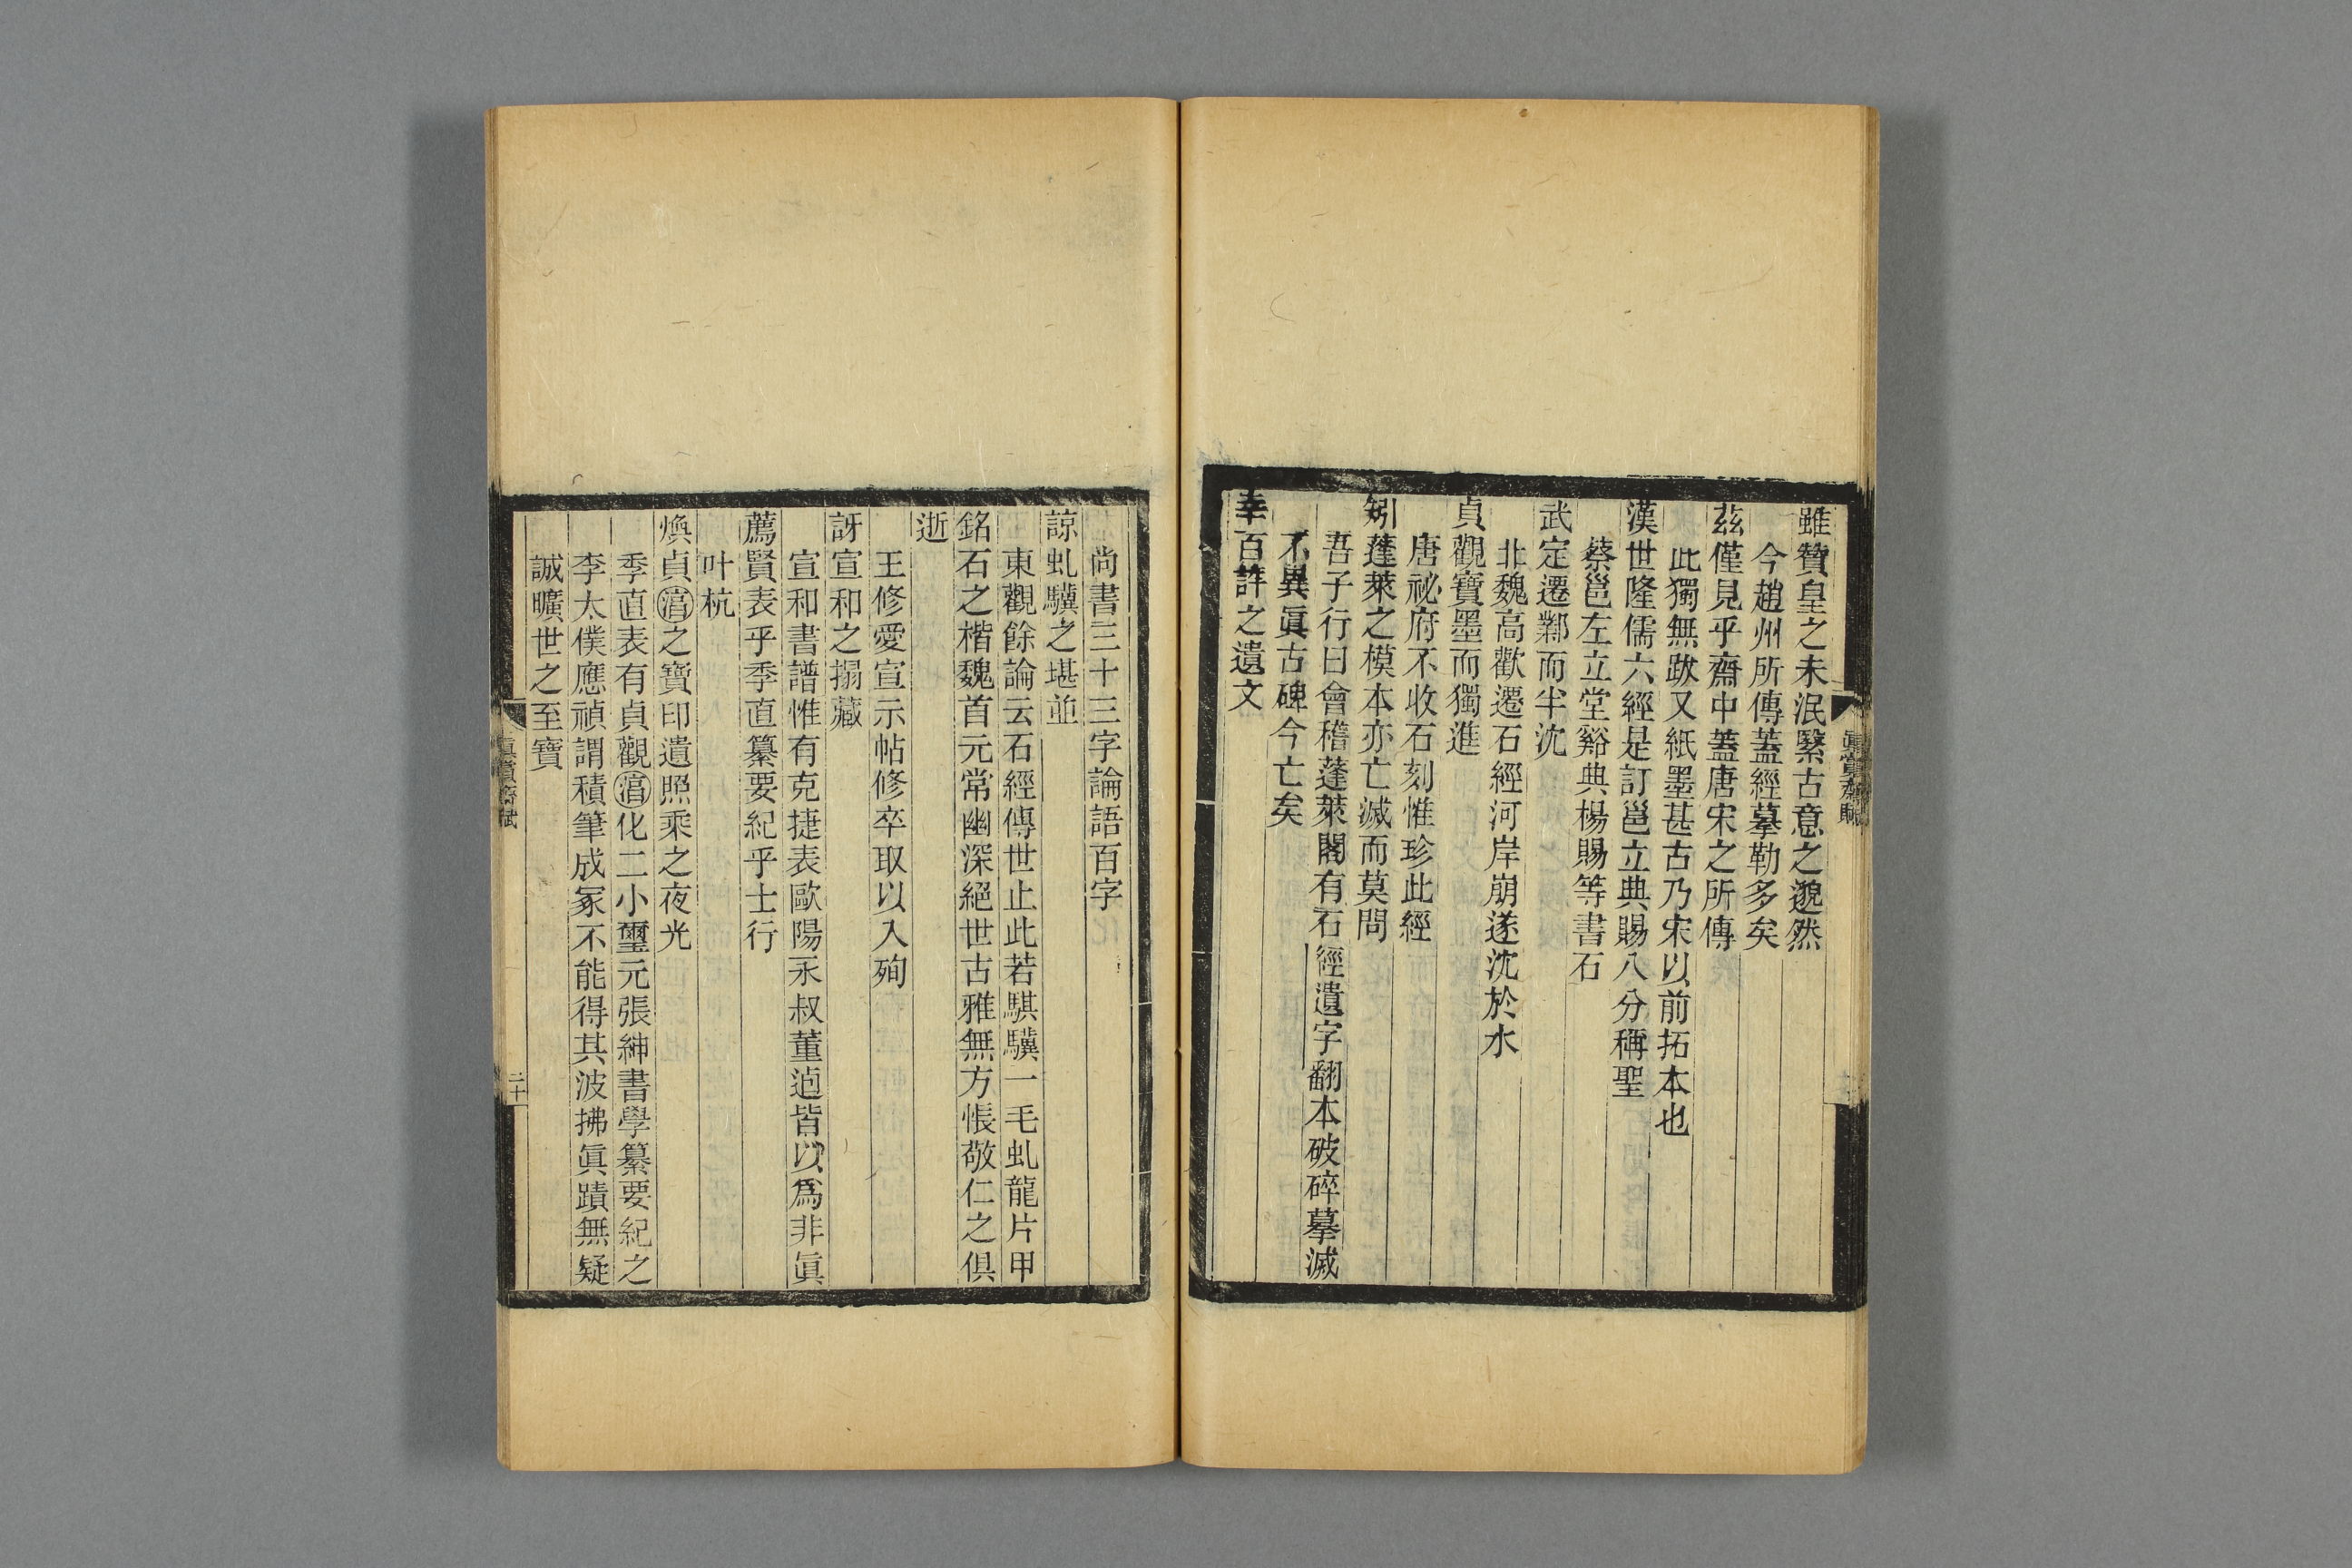 雖贊皇之未泯繄古意之邈然
今趙州所傳蓋經摹勒多矣
茲僅見乎齋中蓋唐宋之所傳
此獨無跋又紙墨甚古乃宋以前拓本也
漢世隆儒六經是訂邕立典賜八分稱聖
蔡邕左立堂谿典楊賜等書石
武定遷鄴而半沈
北魏高歡遷石經河岸崩遂沈於水
貞觀寶墨而獨進
唐祕府不收石刻惟珍此經
矧蓬萊之模本亦亡滅而莫問
吾子行曰會稽蓬萊閣有石經遺字翻本破碎摹滅
不異眞古碑今亡矣
幸百許之遺文
尚書三十三字論語百字
諒虬驥之堪並
東觀餘論云石經傳世止此若騏驥一毛虬龍片甲
銘石之楷魏首元常幽深絕世古雅無方悵敬仁之俱
逝
王修愛宣示帖修卒取以入殉
訝宣和之搨藏
宣和書譜惟有克捷表歐陽永叔董逌皆以爲非眞
薦賢表乎季直纂要紀乎士行
叶杭
煥貞之寶印遺照乘之夜光
季直表有貞觀化二小璽元張紳書學纂要紀之
李太僕應禎謂積筆成冢不能得其波拂眞蹟無疑
誠曠世之至寶
眞賞齋賦
二十